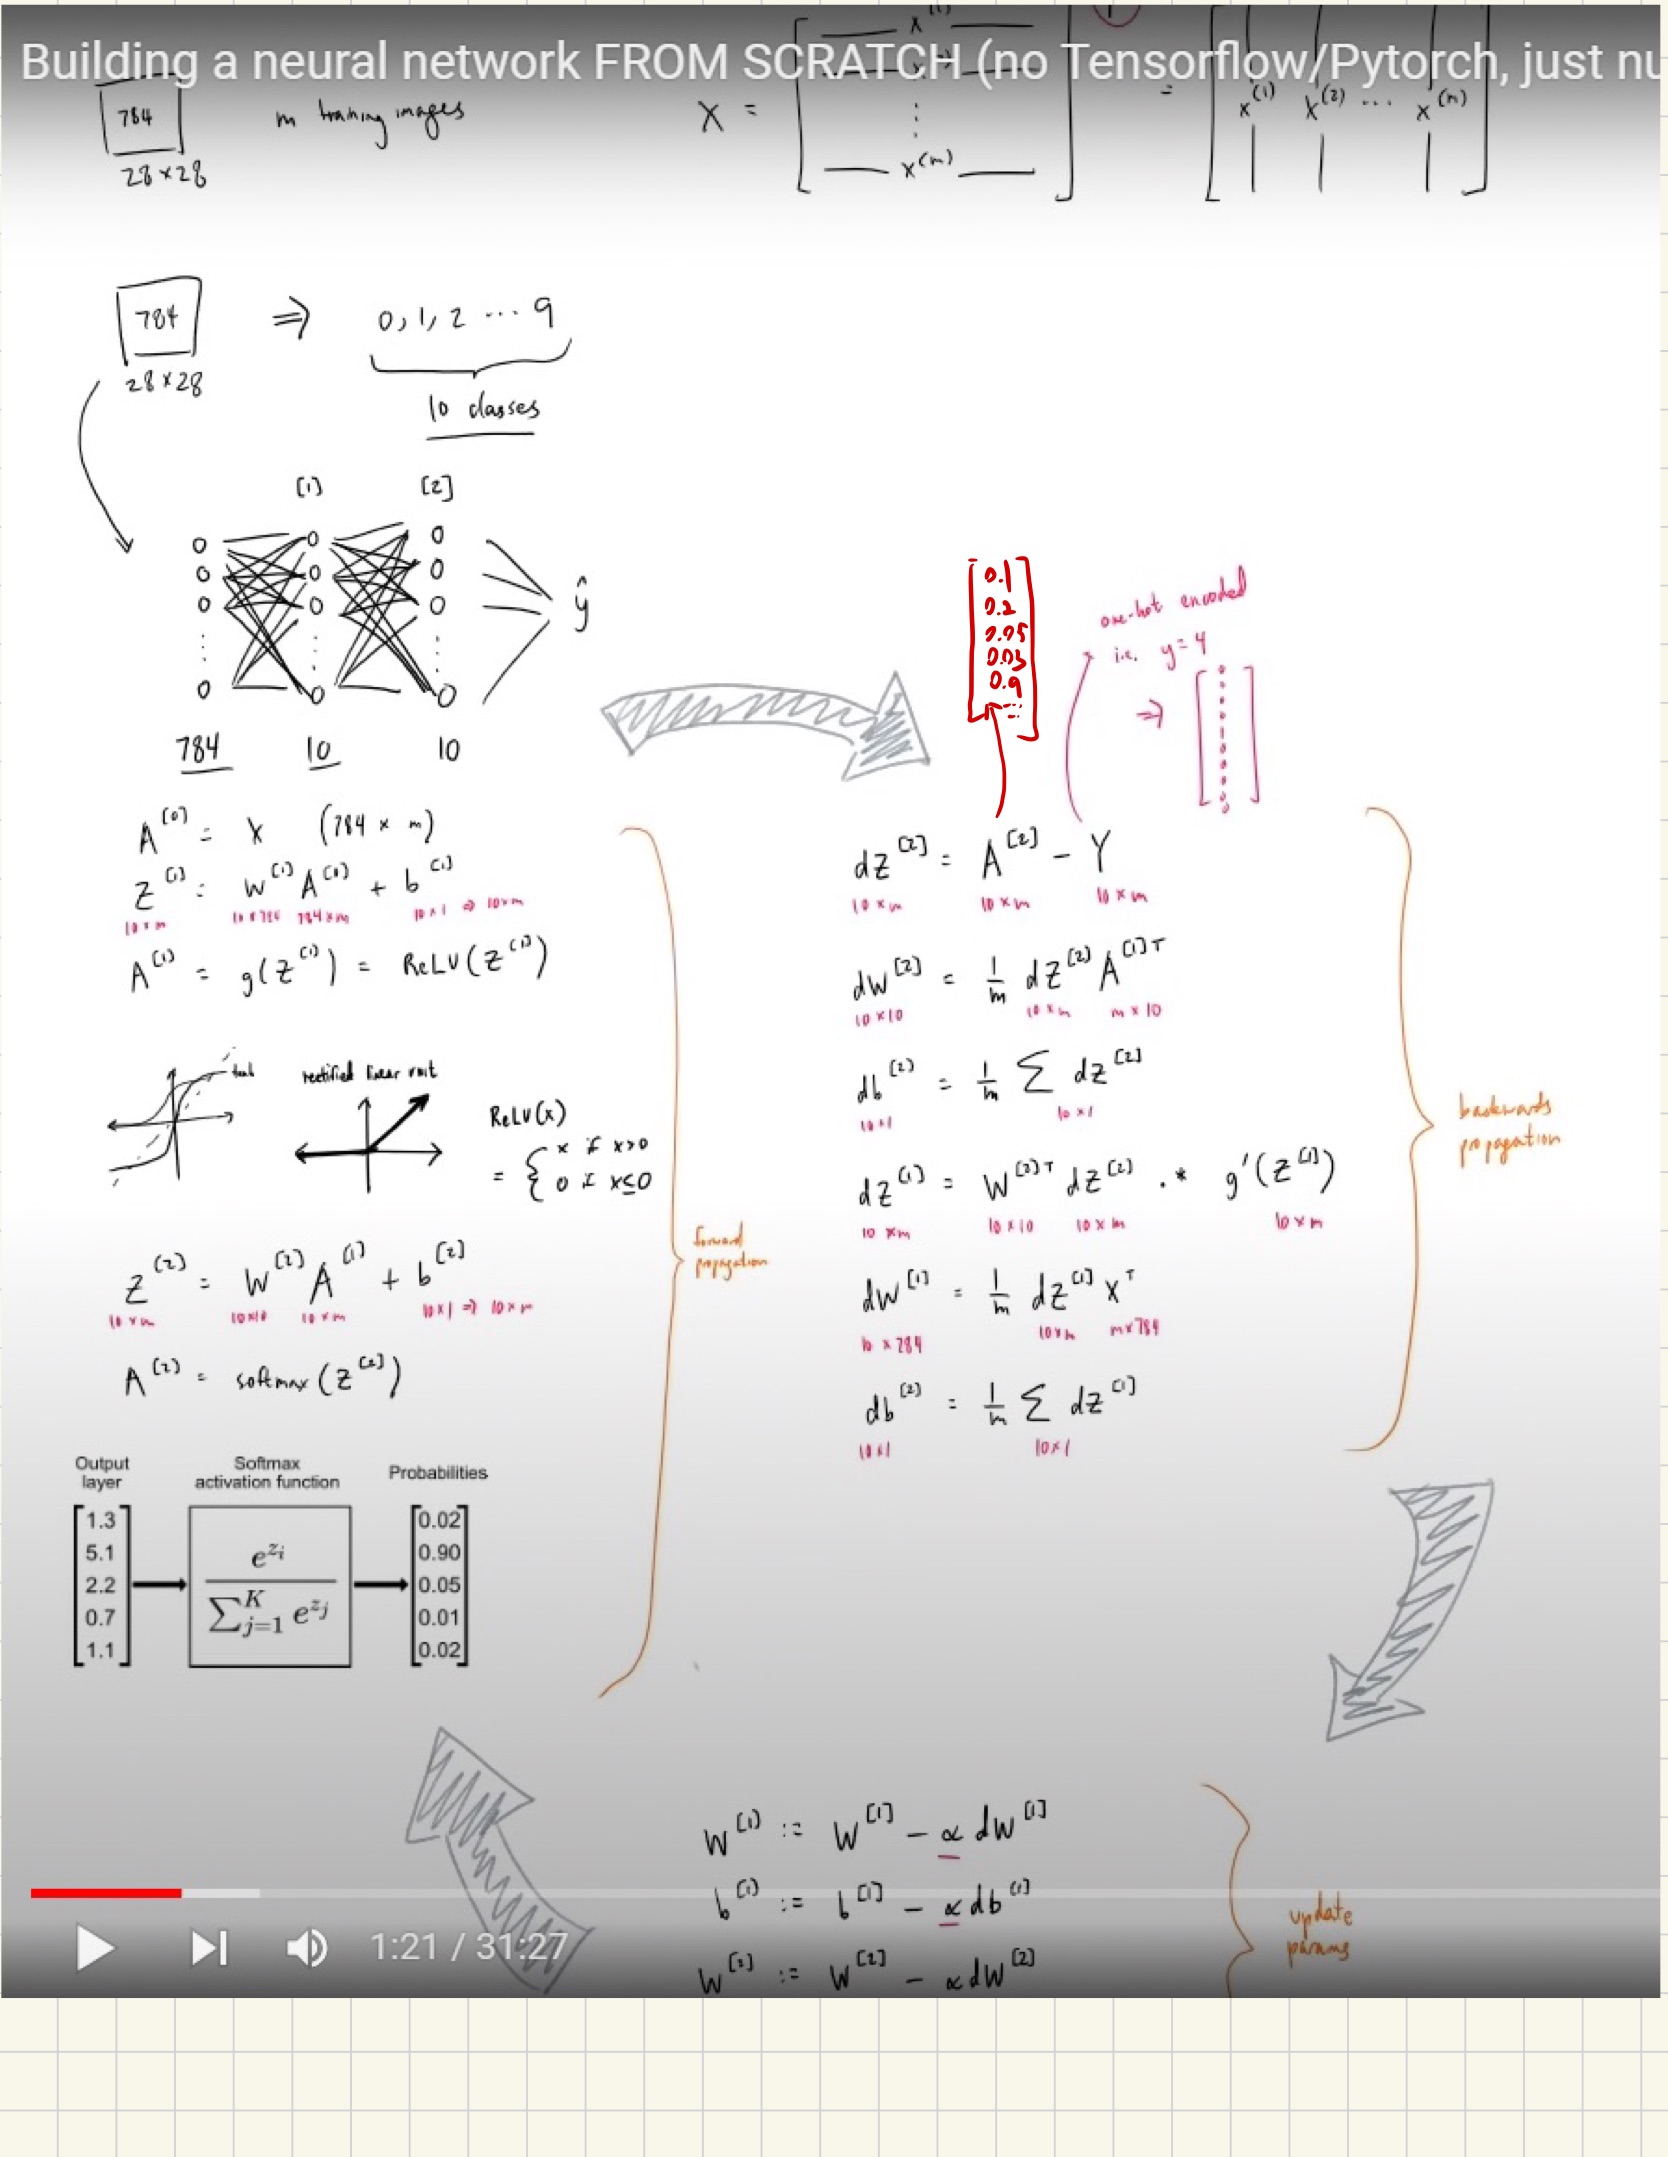 Building a neural network FROM SCRATCH (no Tensorflow/Pytorch, just nu
784
28×28
m training images
X = [ x^(1) ⋮ x^(m) ] = [ x^(1) x^(2) ... x^(m) ]
784 ⇒ 0, 1, 2 ... 9
28×28
10 classes
[1] [2]
ŷ
784 10 10
A^[0] = X (784 × m)
Z^[1] = W^[1] A^[0] + b^[1]
10×m 10×784 784×m 10×1 ⇒ 10×m
A^[1] = g(Z^[1]) = ReLU(Z^[1])
tanh
rectified linear unit
ReLU(x)
= { x if x>0
0 if x≤0
Z^[2] = W^[2] A^[1] + b^[2]
10×m 10×10 10×m 10×1 ⇒ 10×m
A^[2] = softmax(Z^[2])
Output layer
Softmax activation function
Probabilities
1.3
5.1
2.2
0.7
1.1
e^{z_i} / ∑_{j=1}^{K} e^{z_j}
0.02
0.90
0.05
0.01
0.02
forward
propagation
0.1
0.2
0.05
0.03
0.9
one-hot encoded
i.e. y=4
⇒
dZ^[2] = A^[2] − Y
10×m 10×m 10×m
dW^[2] = 1/m dZ^[2] A^[1]T
10×10 10×m m×10
db^[2] = 1/m Σ dZ^[2]
10×1 10×1
dZ^[1] = W^[2]T dZ^[2] .* g′(Z^[1])
10×m 10×10 10×m 10×m
dW^[1] = 1/m dZ^[1] X^T
10×784 10×m m×784
db^[2] = 1/m Σ dZ^[1]
10×1 10×1
backwards
propagation
W^[1] := W^[1] − α dW^[1]
b^[1] := b^[1] − α db^[1]
W^[2] := W^[2] − α dW^[2]
update
params
1:21 / 31:27